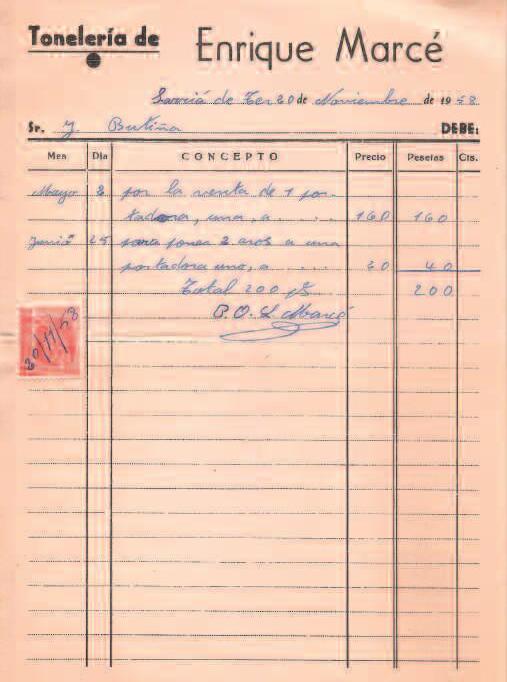 Tonelería de Enrique Marcé
Sarriá de Ter 20 de Noviembre de 1958
Sr. J. Butiña DEBE:
Mes Día CONCEPTO Precio Pesetas Cts.
Mayo 2 por la venta de 1 por-
tadora, una, a . . . . 160 160
Junio 25 para poner 2 aros a una
portadora uno, a . . . . 20 40
Total 200 pts 200
P.O. L. Marcé
20/11/58